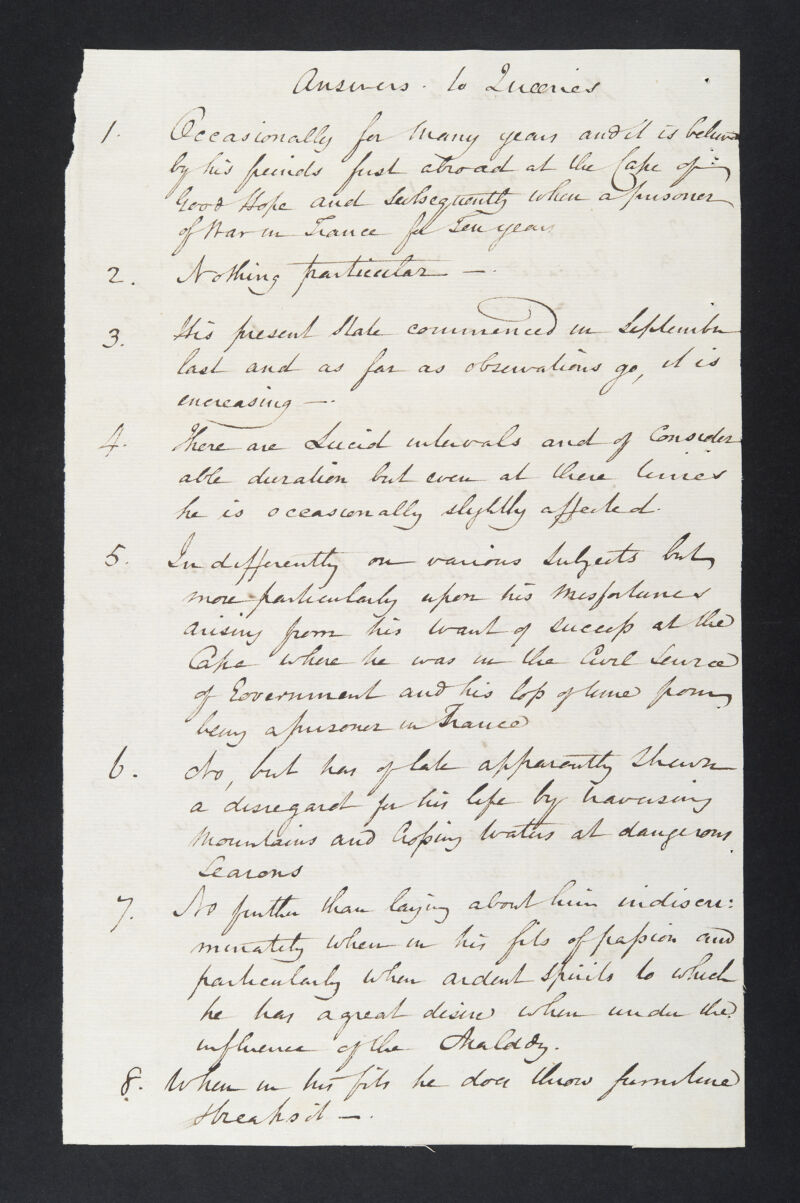 Answers to Queeries
1. Occasionally for many years and it is believed
by his freinds first abroad at the Cape of
Good Hope and subsequently when a prisoner
of War in France for Ten years
2. Nothing particular —.
3. His present State commenced in September
last and as far as observations go, it is
encreasing —.
4. There are Lucid intervals and of Consider
able duration but even at these times
he is occasionally slightly affected.
5. Indifferently on various Subjects but
more particularly upon his misfortunes
arising from his want of success at the
Cape where he was in the Civil Service
of Government and his loss of time from
being a prisoner in France
6. No, but has of late apparently shewn
a disregard for his life by traversing
Mountains and Crossing Waters at dangerous
Seasons
7. No further than laying about him indiscri:
minately when in his fits of passion and
particularly when ardent spirits to which
he has a great desire when under the
influence of the Malady.
8. When in his fits he does throw furniture
& breaks it —.